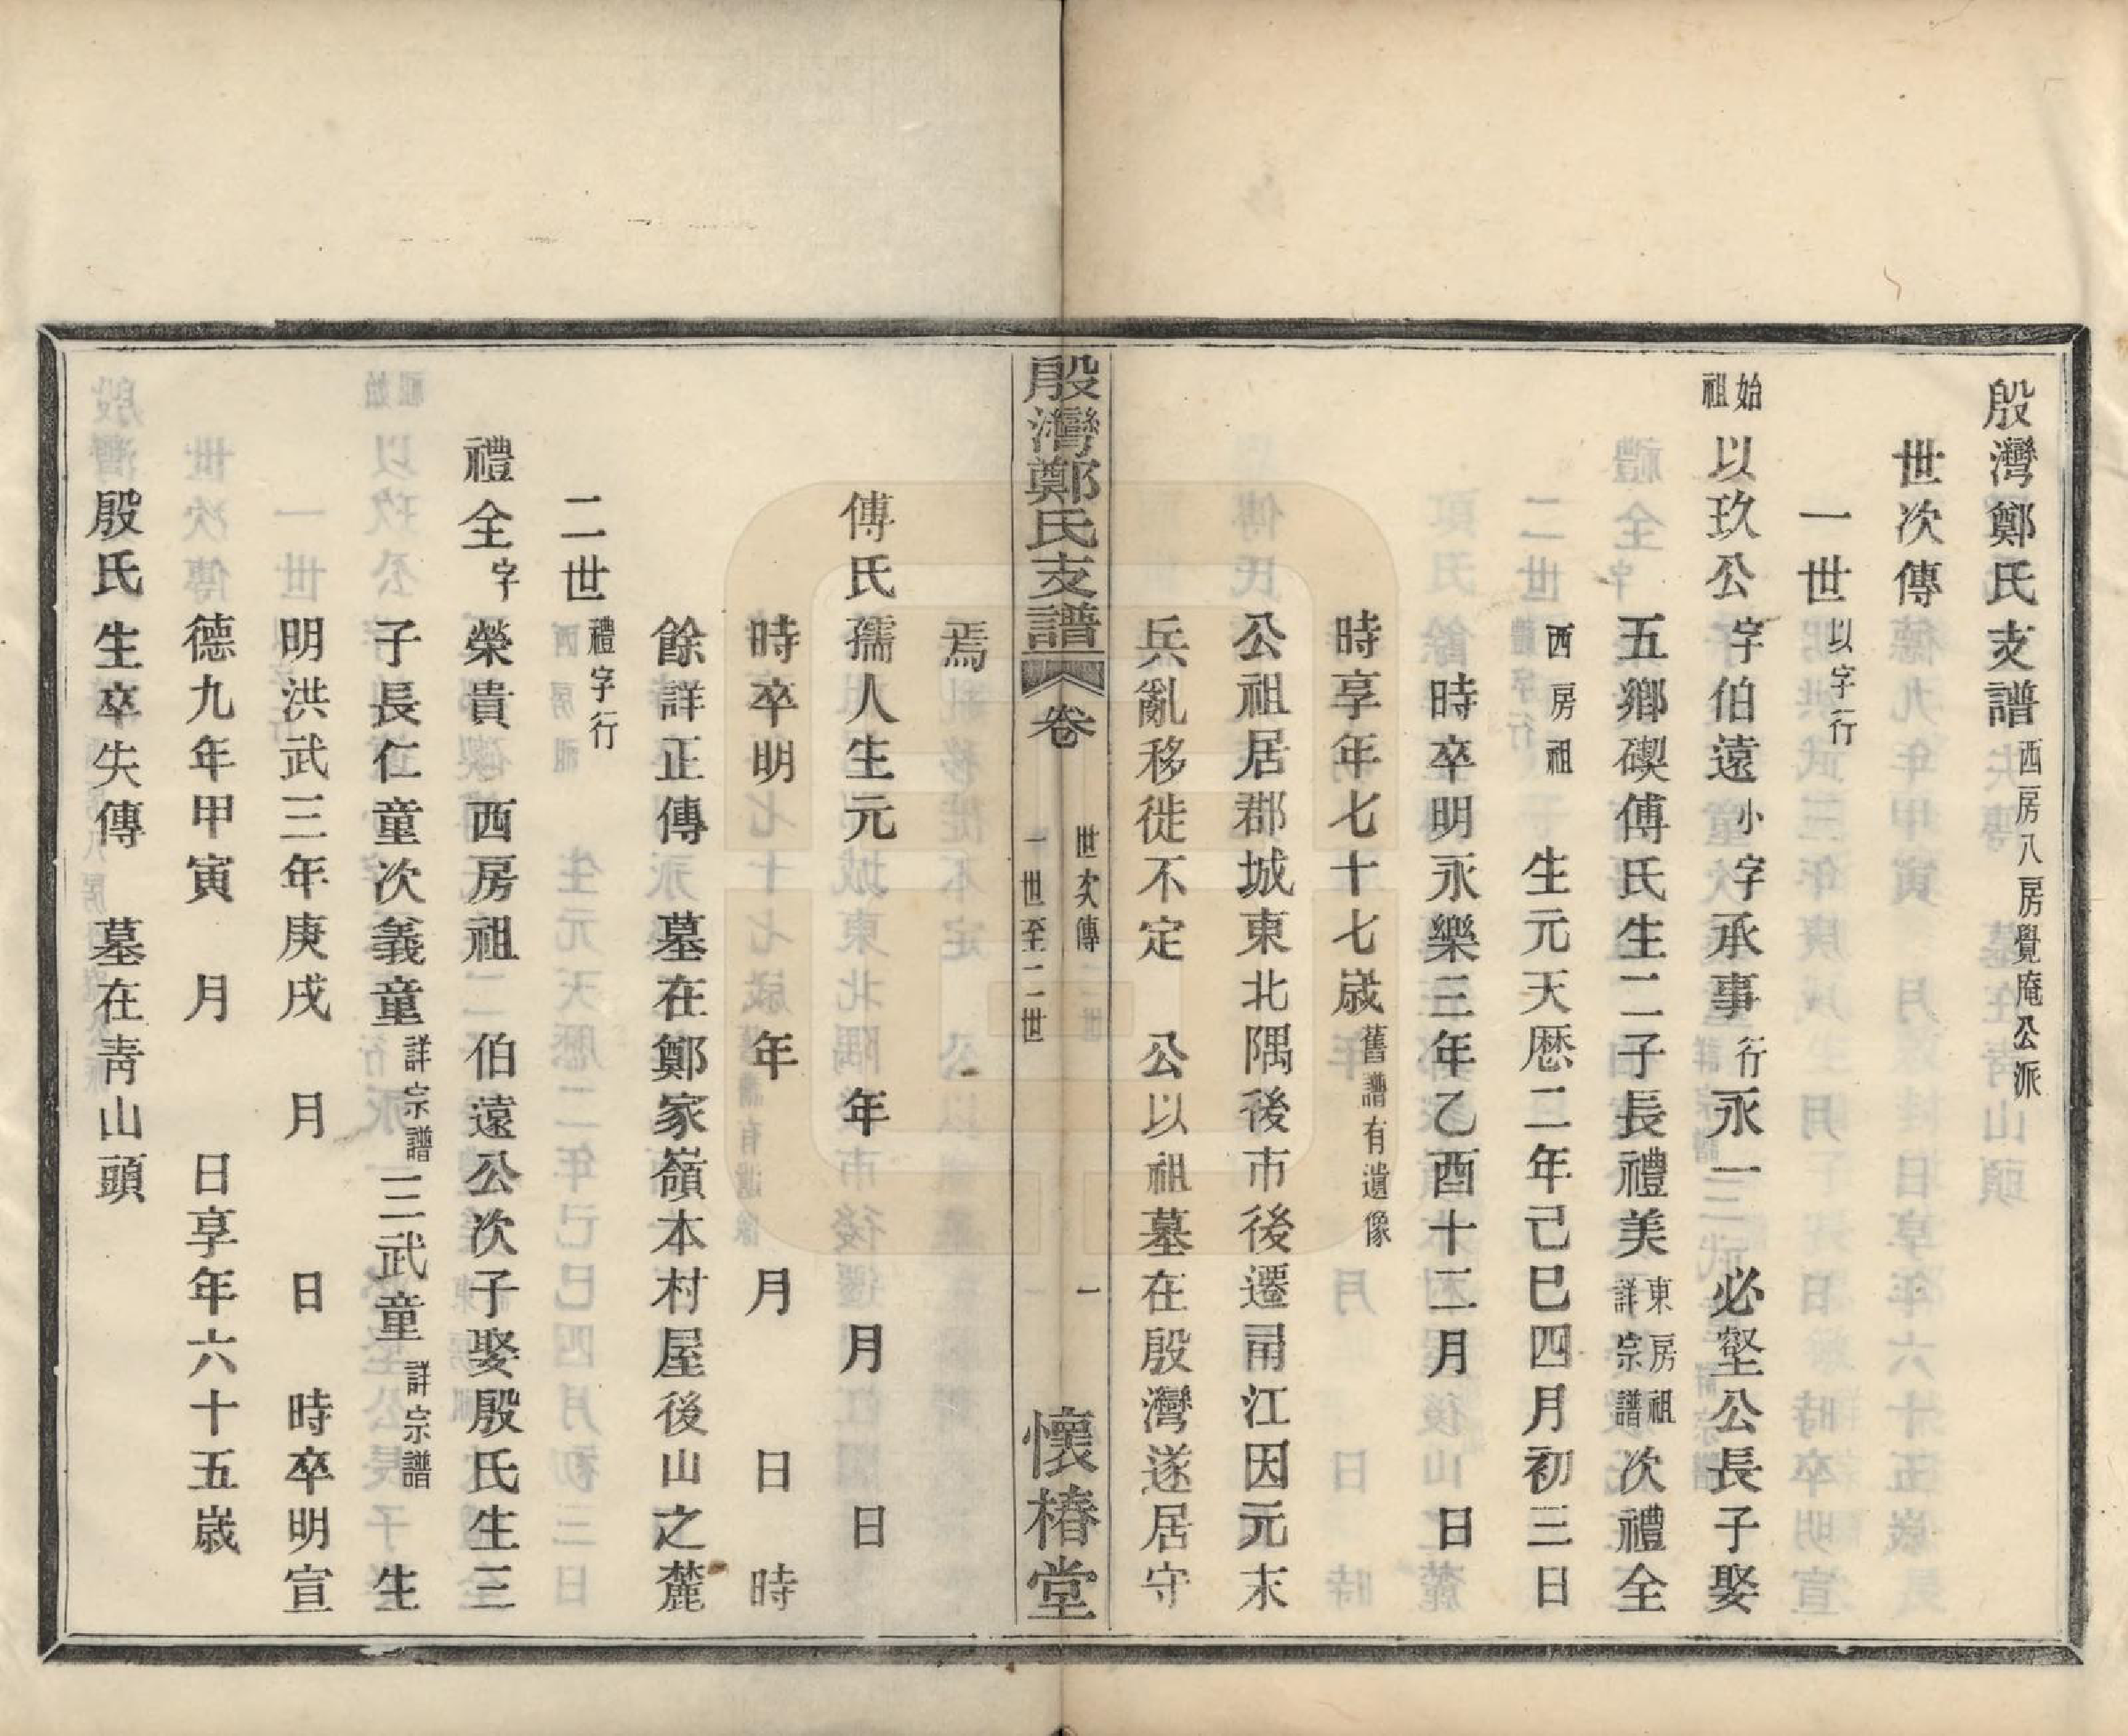 殷灣鄭氏支譜西房八房覺庵公派
世次傳
一世以字行
始祖以玖公字伯遠小字承事行永一　必壑公長子娶
五鄉碶傅氏生二子長禮美東房祖詳宗譜次禮全
西房祖　生元天歷二年己巳四月初三日
時卒明永樂三年乙酉十二月　日
時享年七十七歲舊譜有遺像
公祖居郡城東北隅後市後遷甬江因元末
兵亂移徙不定　公以祖墓在殷灣遂居守
殷灣鄭氏支譜　卷　世次傳　一世至二世　一　懷椿堂
焉
傅氏孺人生元　年　月　日
時卒明　年　月　日　時
餘詳正傳　墓在鄭家嶺本村屋後山之麓
二世禮字行
禮全字榮貴　西房祖　伯遠公次子娶殷氏生三
子長仁童次義童詳宗譜三武童詳宗譜　生
明洪武三年庚戌　月　日　時卒明宣
德九年甲寅　月　日享年六十五歲
殷氏生卒失傳　墓在青山頭